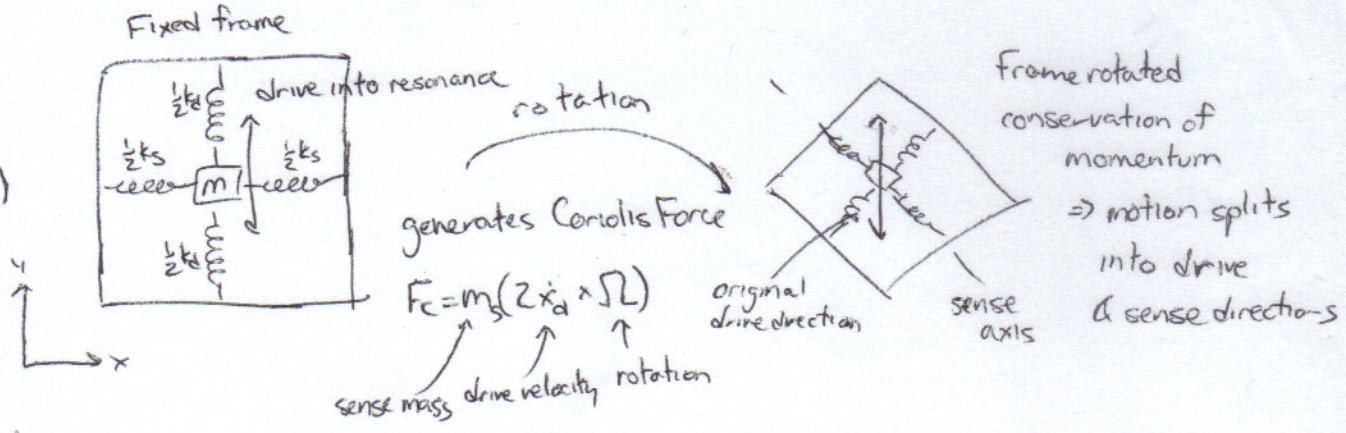 Fixed frame
½kd
drive into resonance
½ks
½ks
m
½kd
)
y
x
rotation
generates Coriolis Force
Fc = ms(2ẋd × Ω)
sense mass
drive velocity
rotation
original
drive direction
sense
axis
Frame rotated
conservation of
momentum
⇒ motion splits
into drive
& sense directions